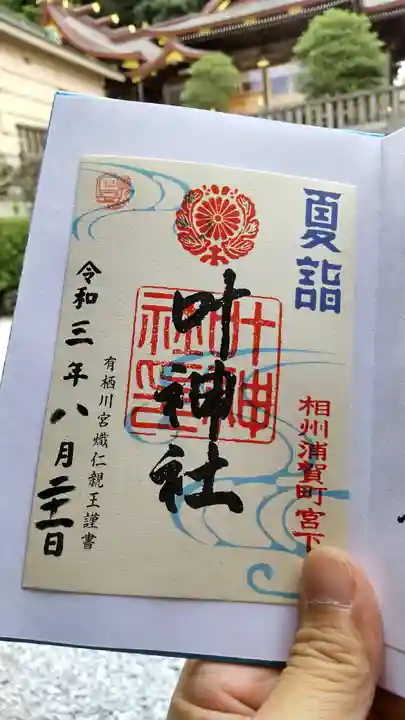 夏詣
相州浦賀町宮下
叶神社
叶神
社印
有栖川宮熾仁親王謹書
令和三年八月二十一日